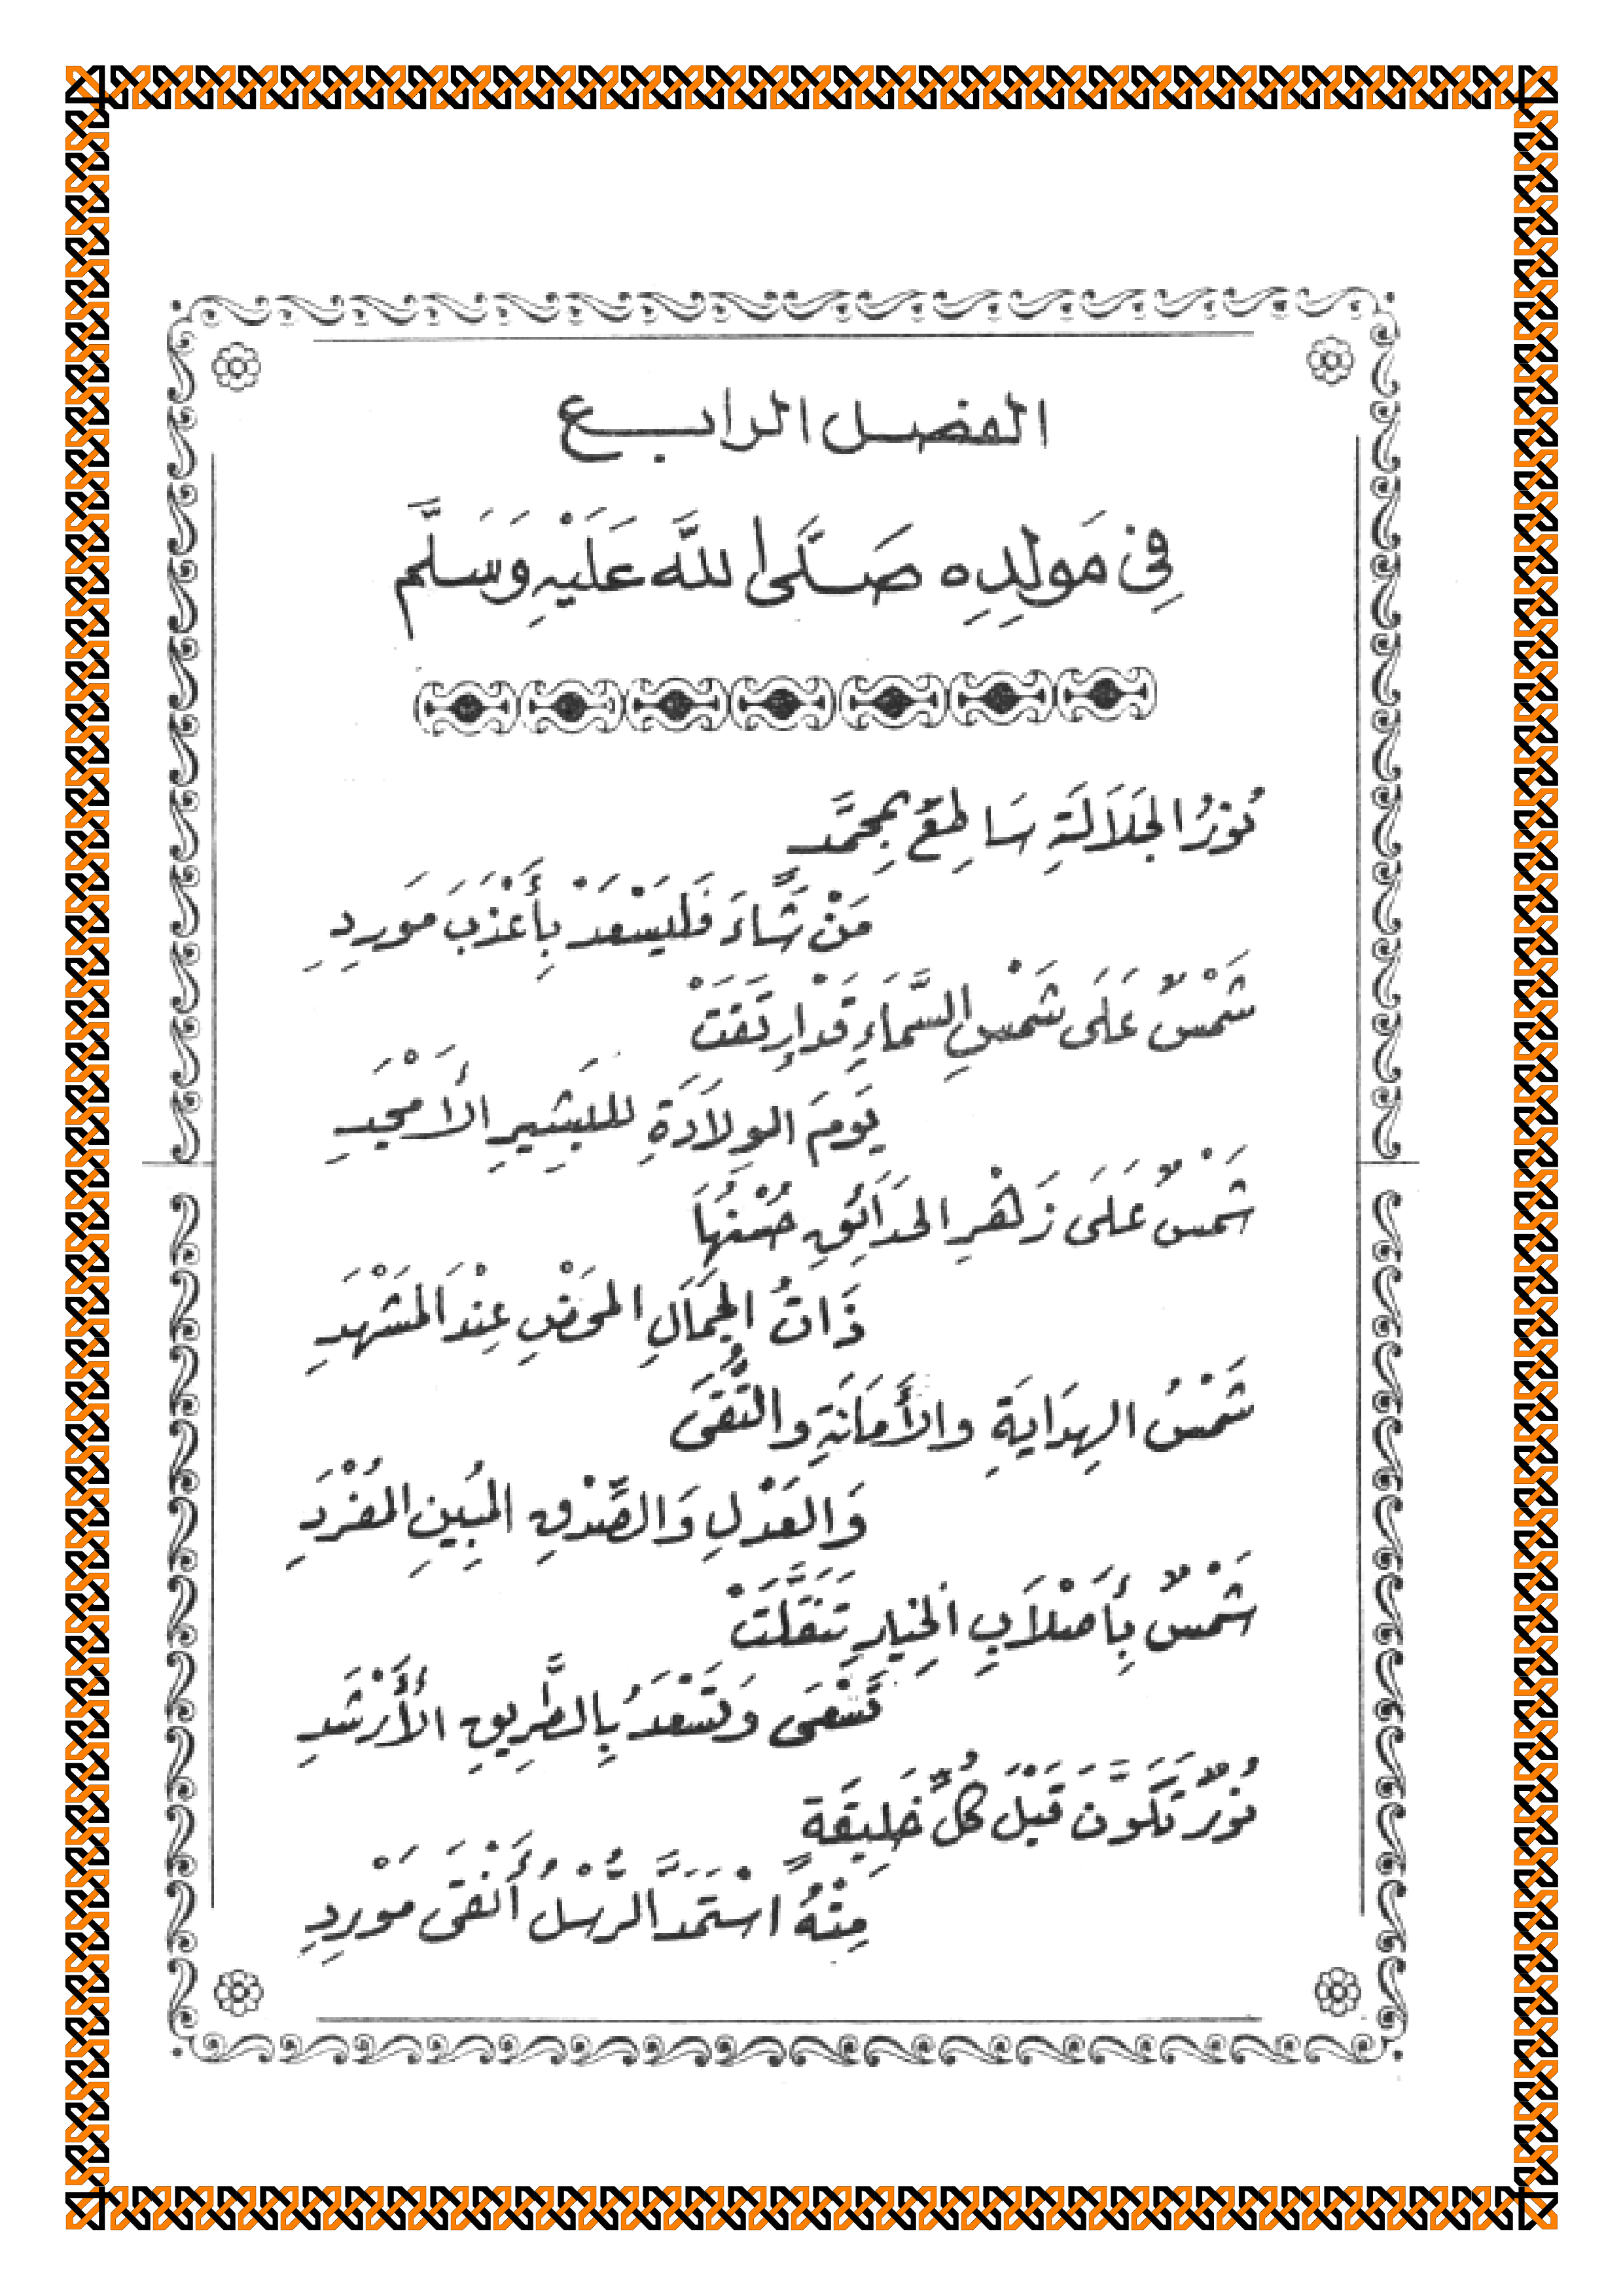 الفصل الرابع
فِي مَولِدِهِ صَلَّى اللَّه عَلَيْهِ وَسَلَّم
نُورُ الجَلَالَةِ سَاطِعٌ بِمُحَمَّدٍ
مَنْ شَاءَ فَليَسْعَدْ بِأَعْذَبَ مَورِدِ
شَمْسٌ عَلَى شَمْسِ السَّمَاءِ قَدْ ارتَقَتْ
يَومَ الوِلَادَةِ لِلبَشِيرِ الأَمْجَدِ
شَمْسٌ عَلَى زَهْرِ الحَدَائِقِ حُسْنُهَا
ذَاتُ الجَمَالِ المَحْضِ عِنْدَ المَشْهَدِ
شَمْسُ الهِدَايَةِ والأَمَانَةِ والتُّقَى
وَالعَدْلِ وَالصِّدْقِ المُبِينِ المُفْرَدِ
شَمْسٌ بِأَصْلَابِ الخِيَارِ تَنَقَّلَتْ
تَسْعَى وَتَسْعَدُ بِالطَّرِيقِ الأَرْشَدِ
نُورٌ تَكَوَّنَ قَبْلَ كُلِّ خَلِيقَةٍ
مِنْهُ اسْتَمَدَّ الرُّسْلُ أَنْقَى مَوْرِدِ